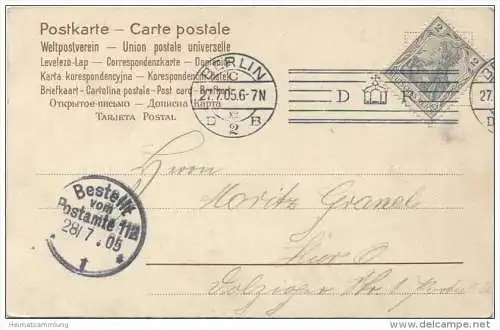 Postkarte – Carte postale
Weltpostverein – Union postale universelle
Levelező-Lap – Correspondenzkarte – Dopisnice
Karta korespondencyjna – Korespondenční lístek
Briefkaart – Cartolina postale – Post card – Brefkort
Открытое письмо – Дописна Карта
Tarjeta Postal
BERLIN
C
27.7.05.6-7N
D B
2
D P
2 2
27.
Bestellt
vom
Postamte 112
28/7 05
1
Herrn
Moritz Granel
Hier O
Dolziger Str 1
Heimatsammlung
oldthing.de